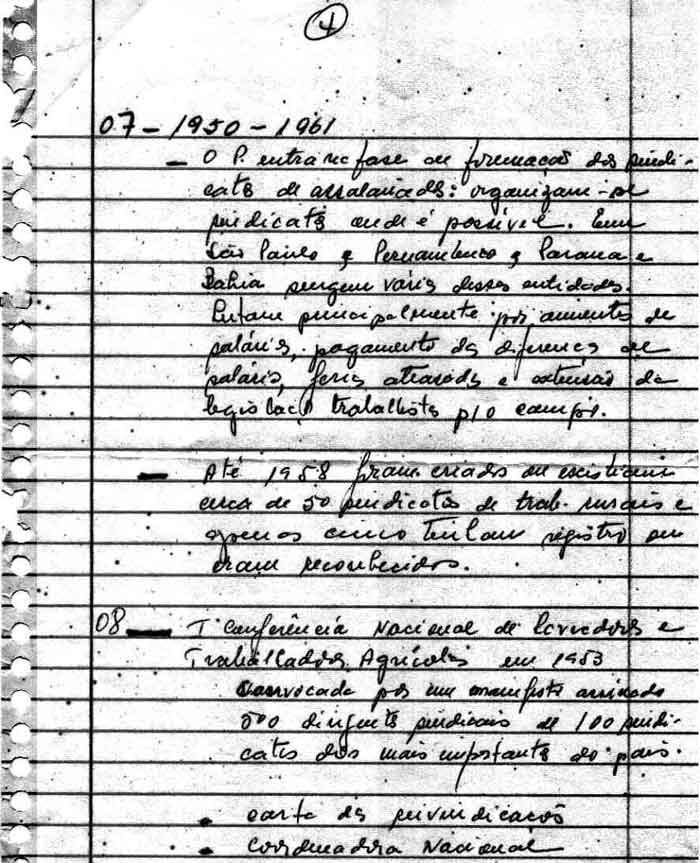 4
07 - 1950 - 1961
- O P. entra na fase de formação dos sindi-
catos de assalariados: organizam-se
sindicatos onde é possível. Em
São Paulo e Pernambuco e Parana e
Bahia surgem vários desses entidades.
Lutam principalmente por aumentos de
salários, pagamento da diferença de
salário, ferias atrasadas e extensão da
legislação trabalhista p/o campo.
- Até 1958 foram criados ou existiam
cerca de 50 sindicatos de trab. rurais e
apenas cinco tinham registro ou
eram reconhecidos.
08 - Iª Conferência Nacional de Lavradores e
Trabalhadores Agrícolas em 1953
Convocada por um manifesto assinado
500 dirigentes sindicais de 100 sindi-
catos dos mais importantes do país.
. carta de reivindicações
. Coordenadora Nacional